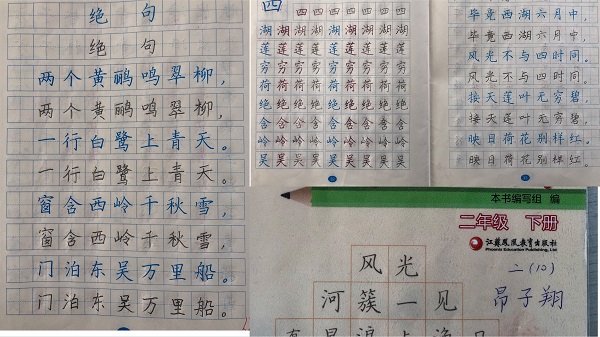 绝句
绝句
两个黄鹂鸣翠柳，
两个黄鹂鸣翠柳，
一行白鹭上青天。
一行白鹭上青天。
窗含西岭千秋雪，
窗含西岭千秋雪，
门泊东吴万里船。
门泊东吴万里船。
西四四四四四四四
湖湖湖湖湖湖湖湖
莲莲莲莲莲莲莲莲
穷穷穷穷穷穷穷穷
荷荷荷荷荷荷荷荷
绝绝绝绝绝绝绝绝
含含含含含含含含
岭岭岭岭岭岭岭岭
吴吴吴吴吴吴吴吴
毕竟西湖六月中，
毕竟西湖六月中，
风光不与四时同。
风光不与四时同。
接天莲叶无穷碧，
接天莲叶无穷碧，
映日荷花别样红。
映日荷花别样红。
本书编写组 编
二年级 下册
江苏凤凰教育出版社
Phoenix Education Publishing, Ltd
二(10)
昂子翔
风光
河簇一见